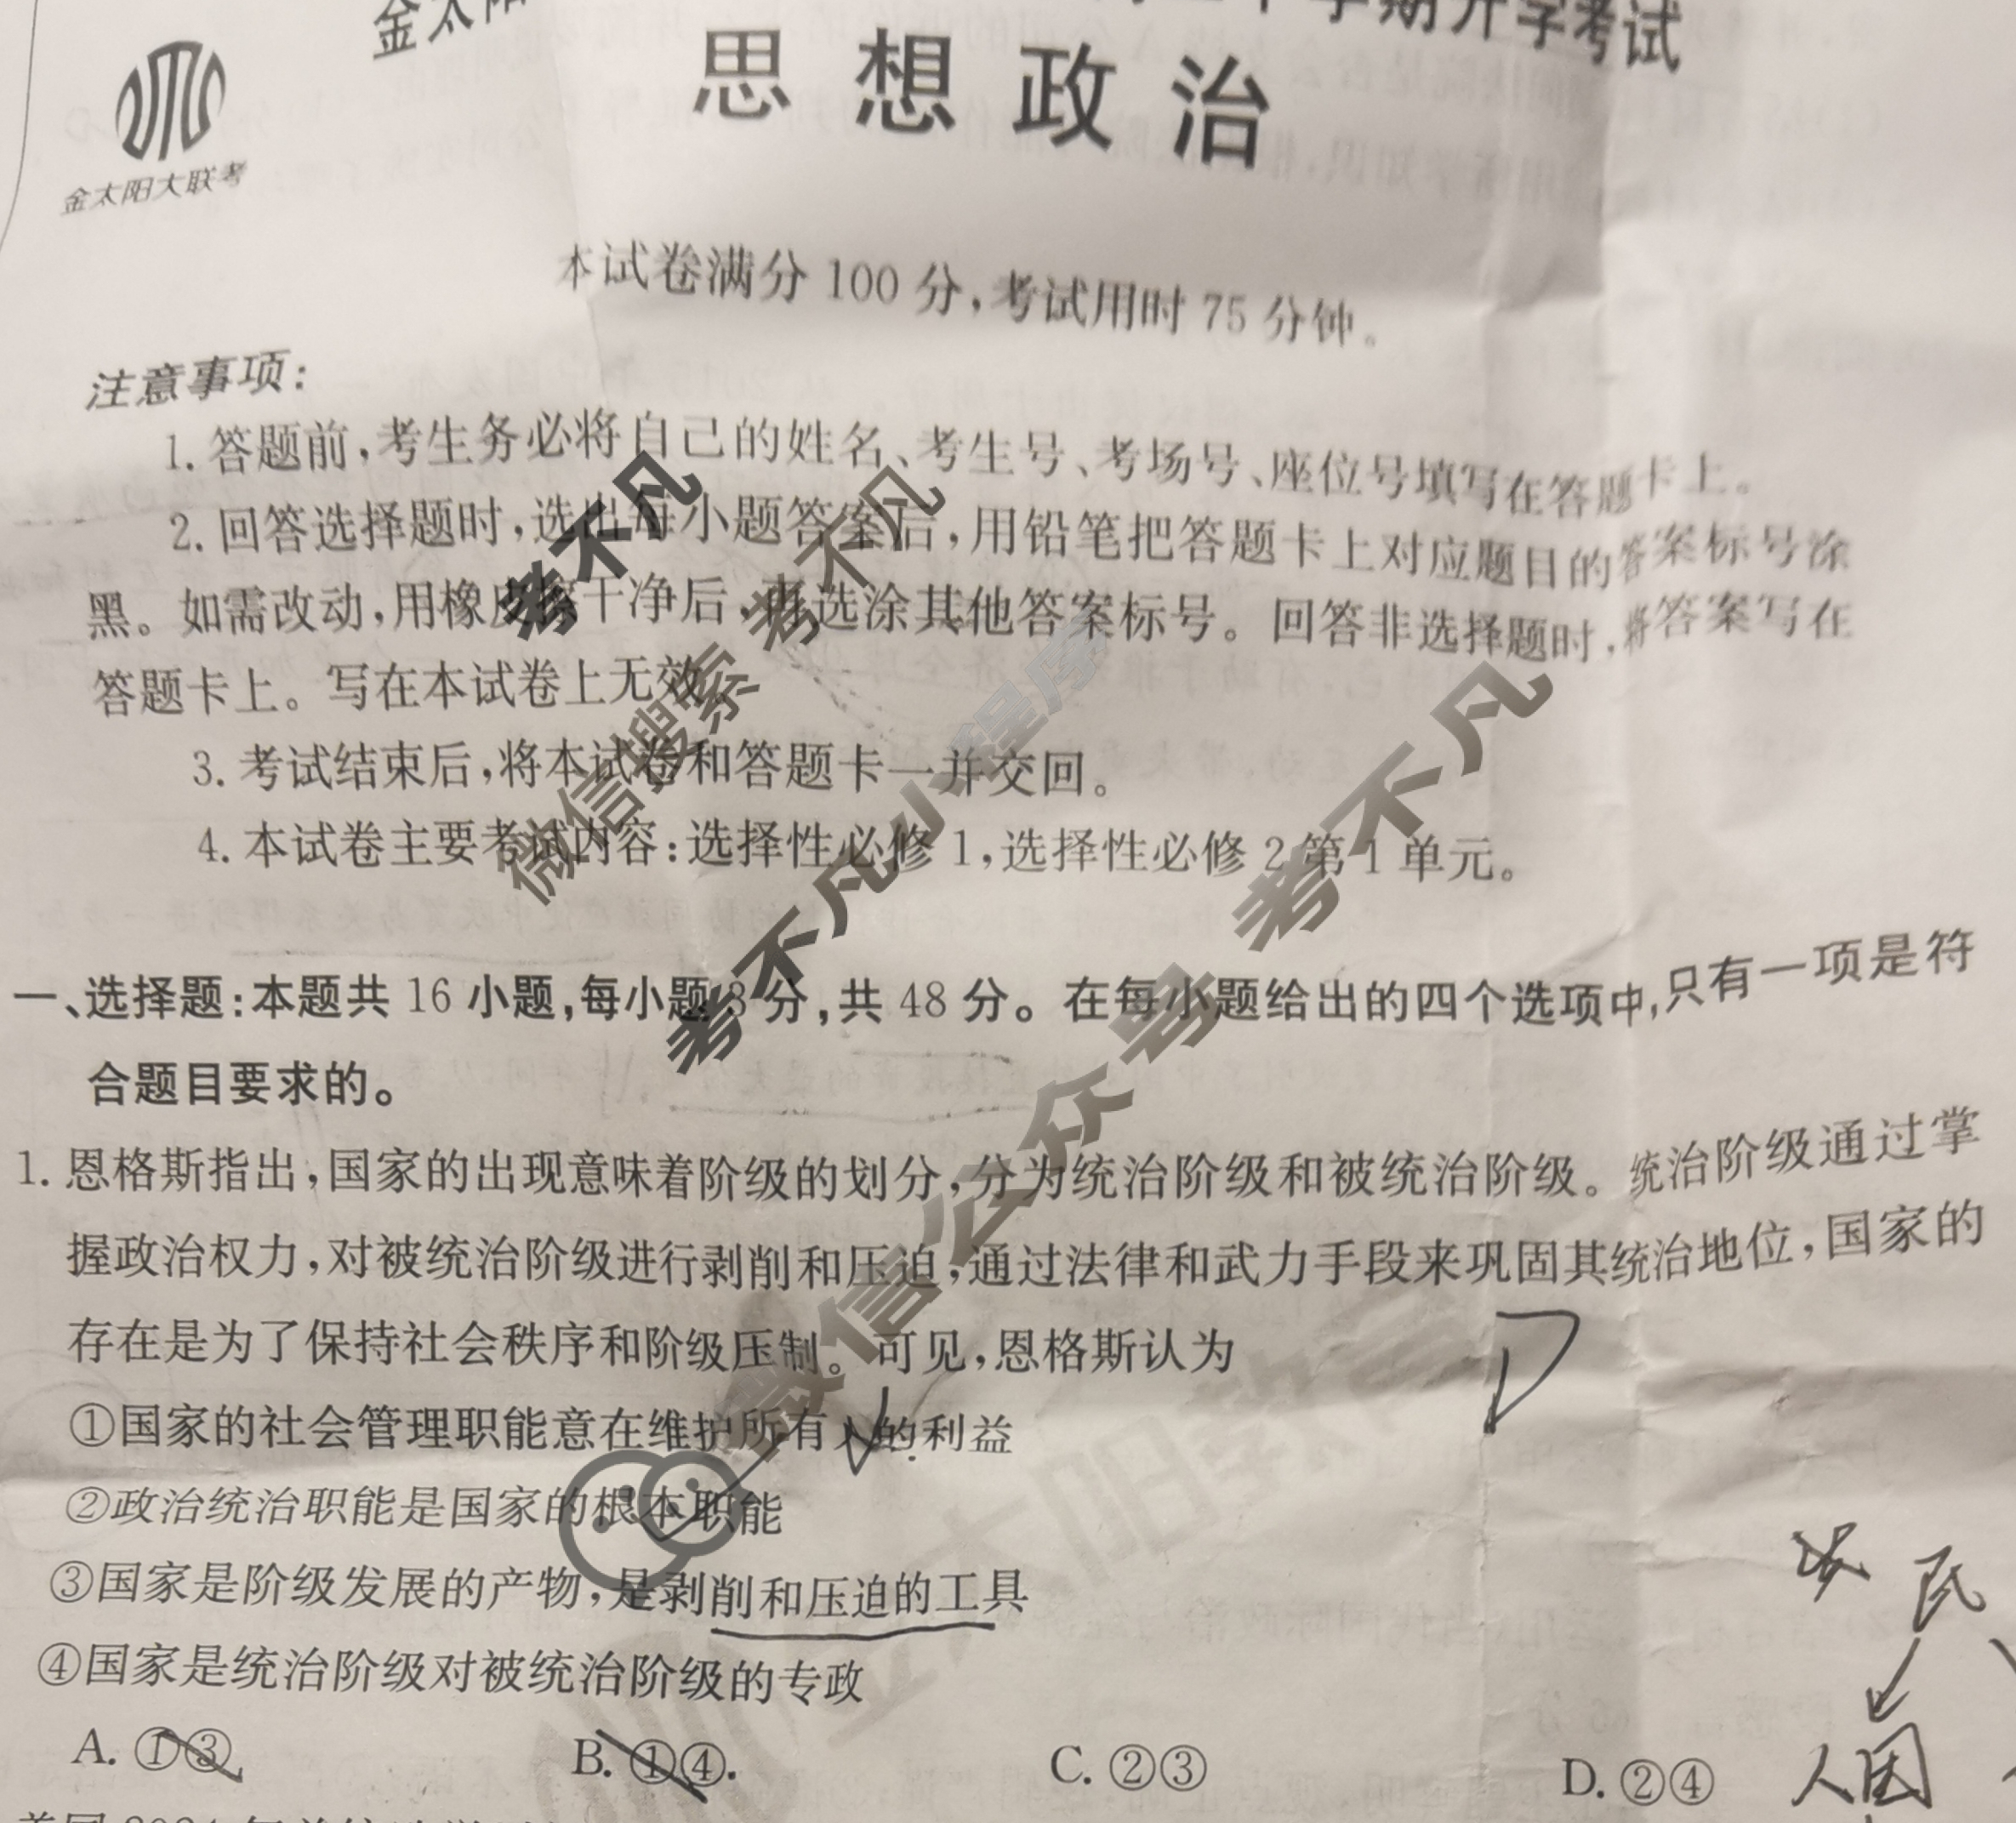 金太阳
学期开学考试
金太阳大联考
思想政治
本试卷满分 100 分,考试用时 75 分钟。
注意事项:
1. 答题前,考生务必将自己的姓名、考生号、考场号、座位号填写在答题卡上。
2. 回答选择题时,选出每小题答案后,用铅笔把答题卡上对应题目的答案标号涂
黑。如需改动,用橡皮擦干净后,再选涂其他答案标号。回答非选择题时,将答案写在
答题卡上。写在本试卷上无效。
3. 考试结束后,将本试卷和答题卡一并交回。
4. 本试卷主要考试内容:选择性必修 1,选择性必修 2 第 1 单元。
考不凡
微信搜索 考不凡
考不凡小程序
微信公众号 考不凡
一、选择题:本题共 16 小题,每小题 3 分,共 48 分。在每小题给出的四个选项中,只有一项是符
合题目要求的。
1. 恩格斯指出,国家的出现意味着阶级的划分,分为统治阶级和被统治阶级。统治阶级通过掌
握政治权力,对被统治阶级进行剥削和压迫,通过法律和武力手段来巩固其统治地位,国家的
存在是为了保持社会秩序和阶级压制。可见,恩格斯认为
D
①国家的社会管理职能意在维护所有人的利益
②政治统治职能是国家的根本职能
③国家是阶级发展的产物,是剥削和压迫的工具
④国家是统治阶级对被统治阶级的专政
A. ①③ B. ①④. C. ②③ D. ②④
金太阳教育
民
人